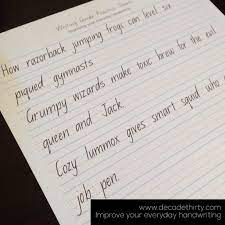 How razorback jumping frogs can level six
piqued gymnasts.
Grumpy wizards make toxic brew for the evil
queen and Jack.
Cozy lummox gives smart squid who
job pen.
www.decadethirty.com
Improve your everyday handwriting